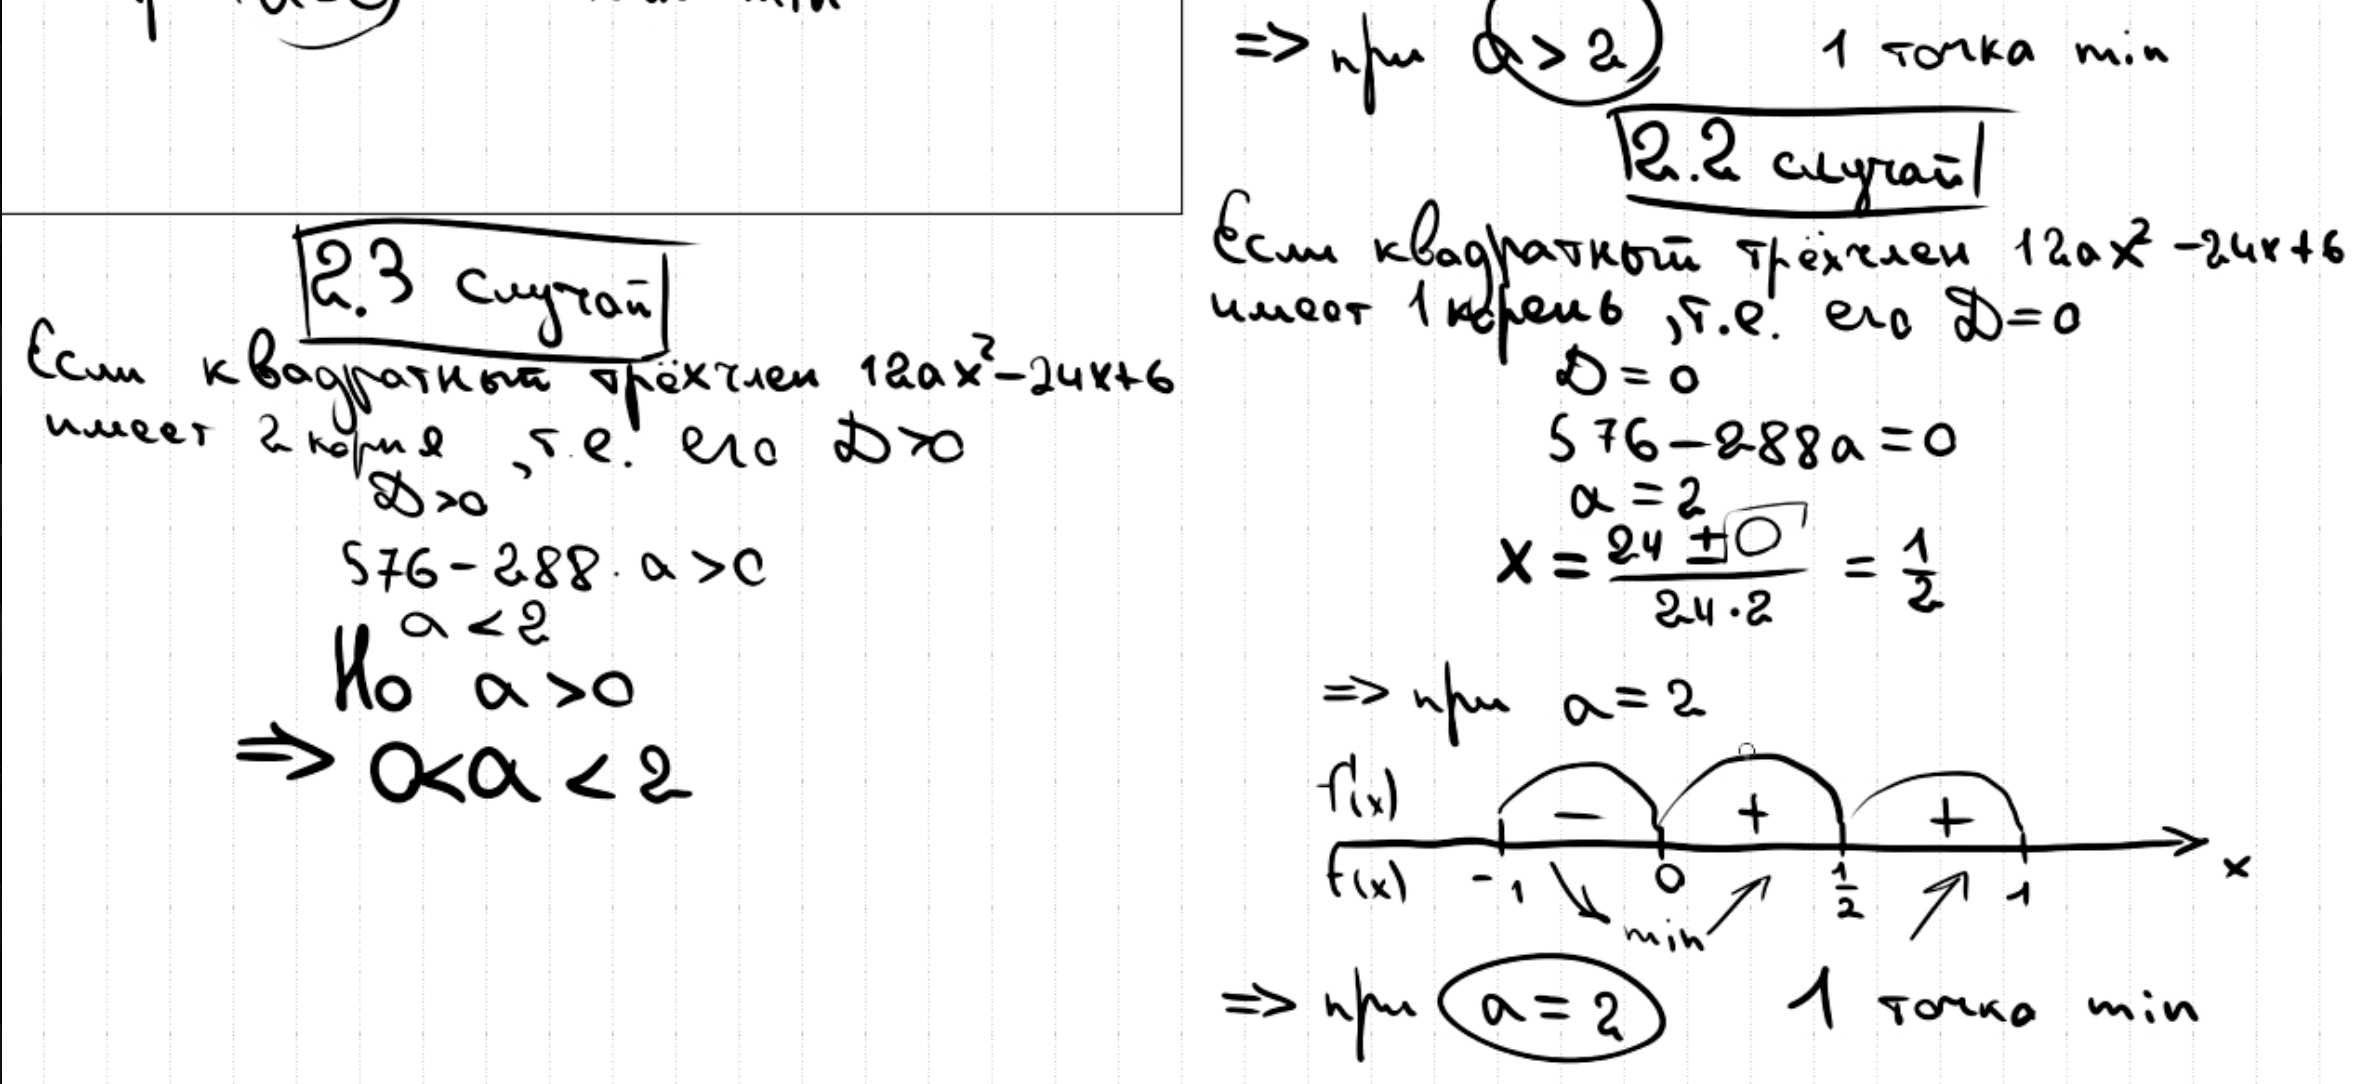 min
2.3 случай
Если квадратный трёхчлен 12ax² -24x+6
имеет 2 корня , т.е. его D>0
D>0
576 - 288 · a > 0
a < 2
Но a > 0
=> 0<a < 2
=> при a > 2 1 точка min
2.2 случай
Если квадратный трёхчлен 12ax² -24x+6
имеет 1 корень , т.е. его D=0
D = 0
576-288a = 0
a = 2
x = (24 ± √0)/(24·2) = 1/2
=> при a = 2
f'(x) - + +
f(x) -1 0 1/2 1 x
min
=> при a = 2 1 точка min